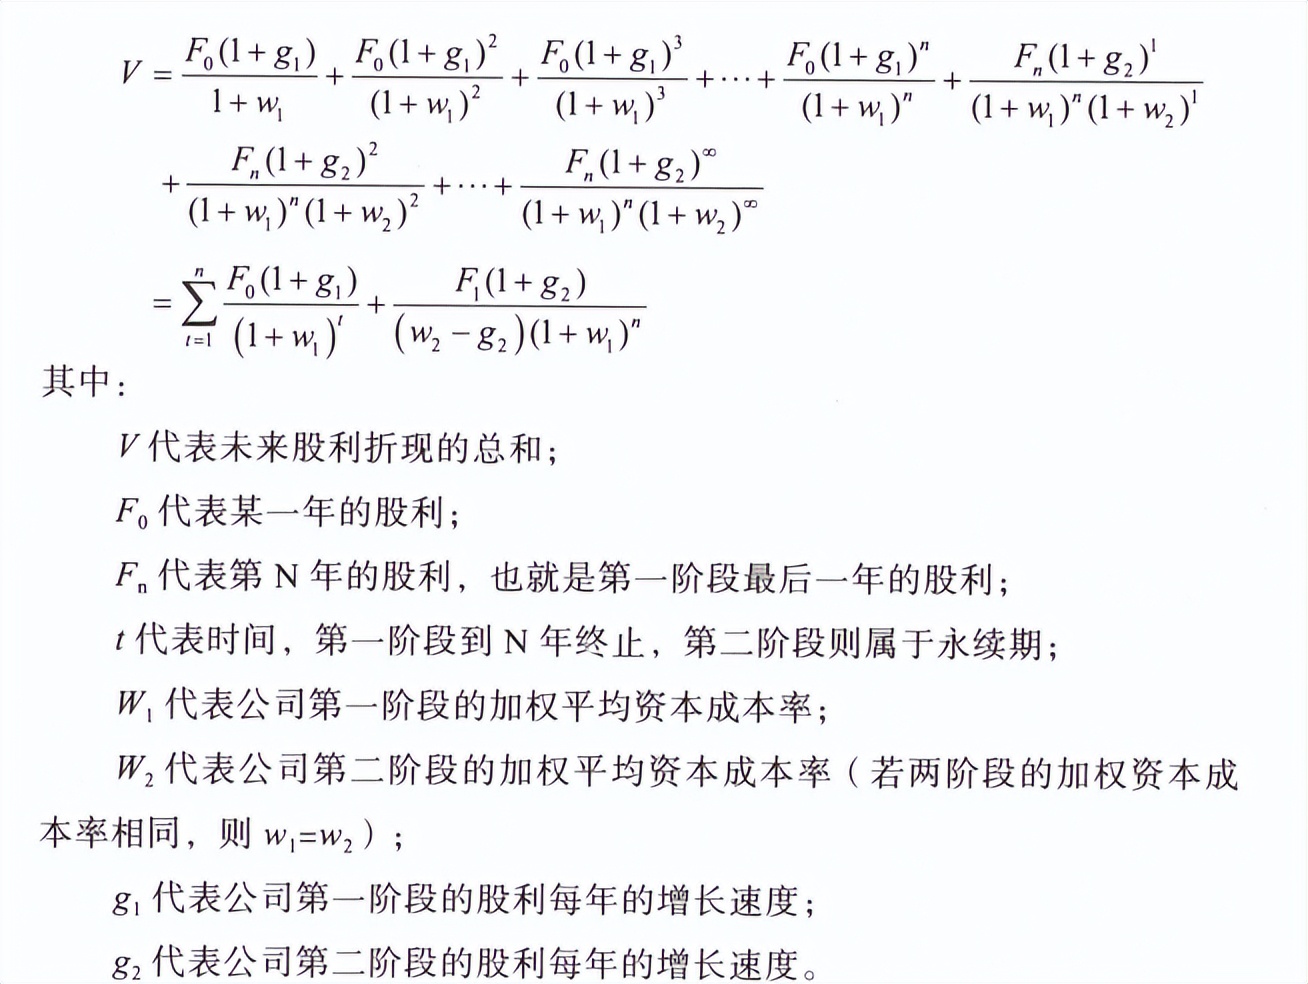 V = \frac{F_0(1+g_1)}{1+w_1} + \frac{F_0(1+g_1)^2}{(1+w_1)^2} + \frac{F_0(1+g_1)^3}{(1+w_1)^3} + \cdots + \frac{F_0(1+g_1)^n}{(1+w_1)^n} + \frac{F_n(1+g_2)^1}{(1+w_1)^n(1+w_2)^1}
+ \frac{F_n(1+g_2)^2}{(1+w_1)^n(1+w_2)^2} + \cdots + \frac{F_n(1+g_2)^∞}{(1+w_1)^n(1+w_2)^∞}
= \sum_{t=1}^{n} \frac{F_0(1+g_1)}{(1+w_1)^t} + \frac{F_1(1+g_2)}{(w_2-g_2)(1+w_1)^n}
其中：
V 代表未来股利折现的总和；
F₀ 代表某一年的股利；
Fₙ 代表第 N 年的股利，也就是第一阶段最后一年的股利；
t 代表时间，第一阶段到 N 年终止，第二阶段则属于永续期；
W₁ 代表公司第一阶段的加权平均资本成本率；
W₂ 代表公司第二阶段的加权平均资本成本率（若两阶段的加权资本成
本率相同，则 w₁=w₂）；
g₁ 代表公司第一阶段的股利每年的增长速度；
g₂ 代表公司第二阶段的股利每年的增长速度。